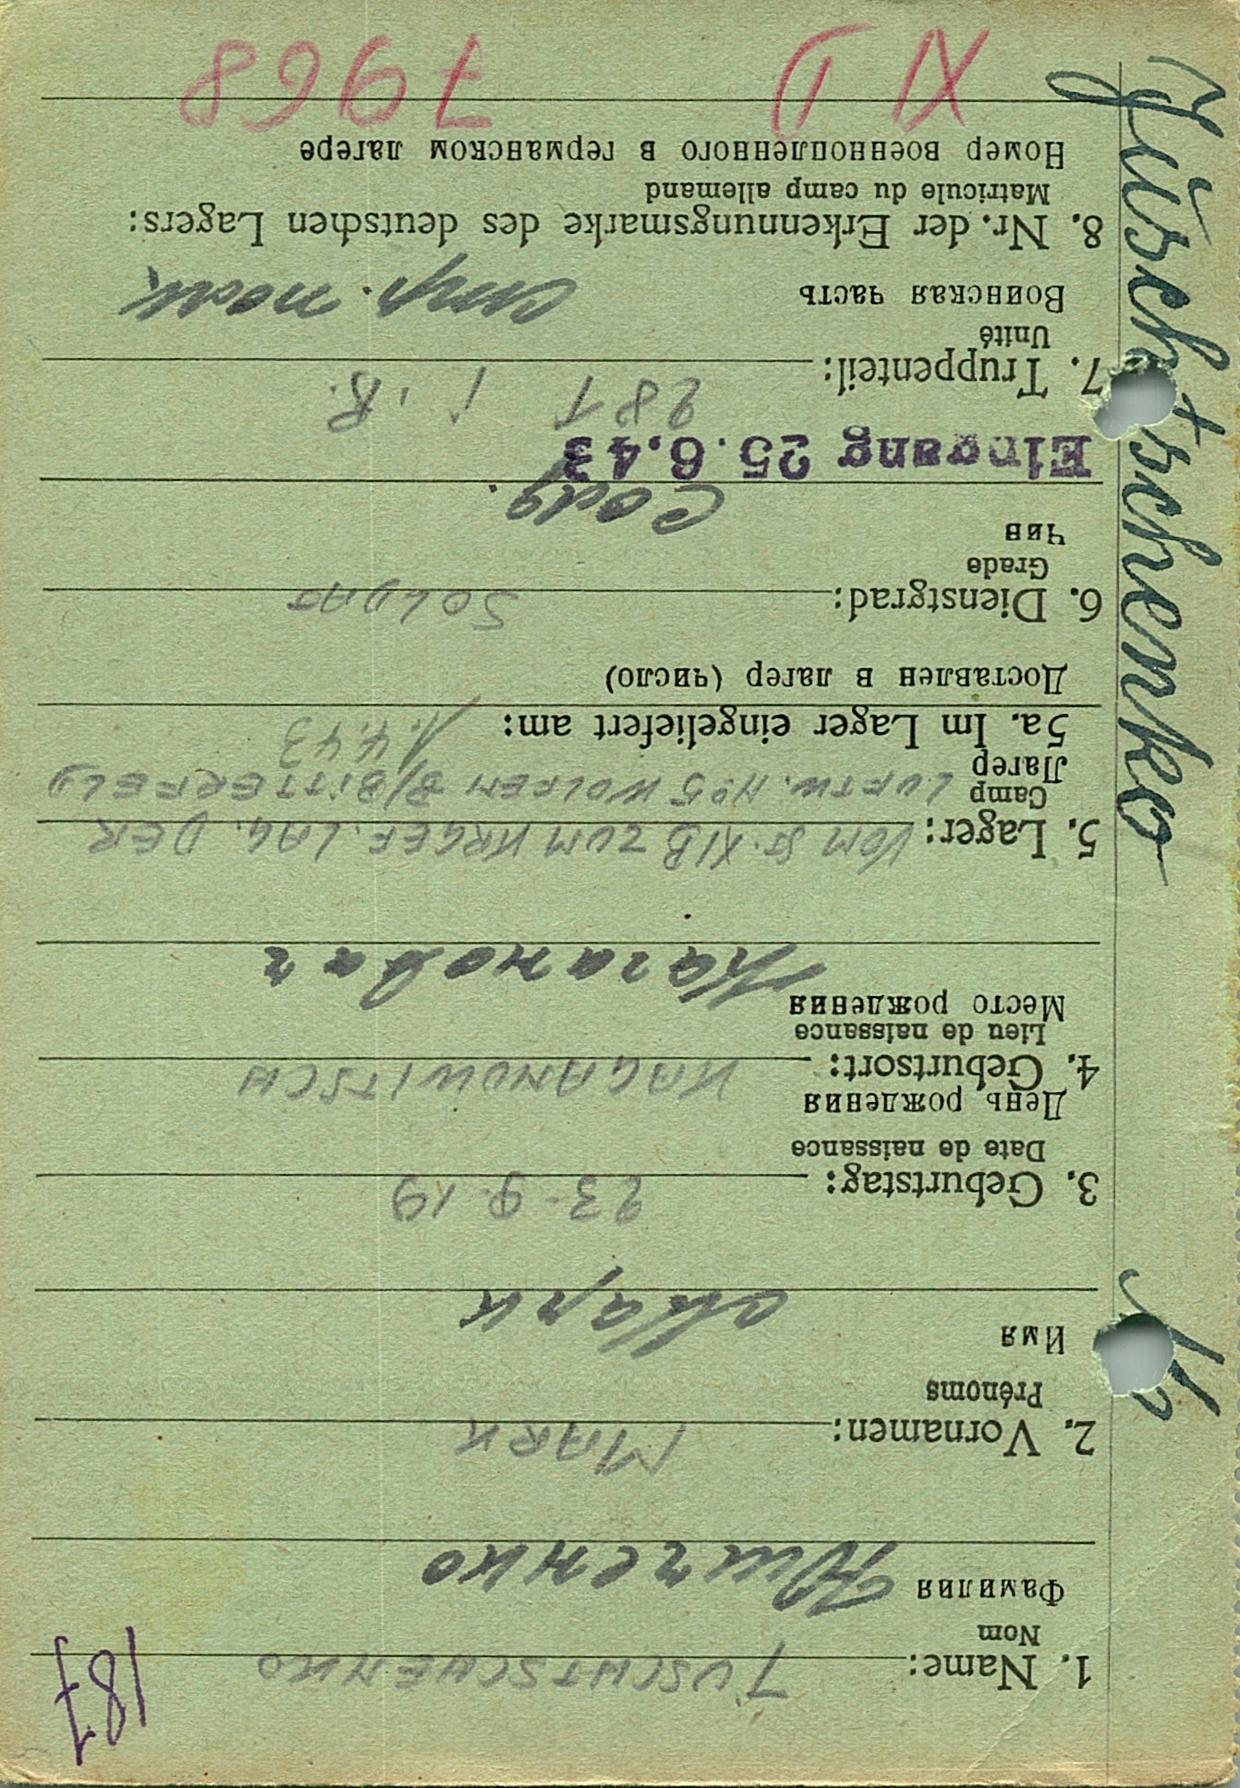 187
1. Name: JUSCHTSCHENKO
Nom
Фамилия Ющенко
2. Vornamen: MARK
Prénoms
Имя
Марк
3. Geburtstag: 23.9.19
Date de naissance
День рождения
4. Geburtsort: KAGANOWITSCH
Lieu de naissance
Место рождения
5. Lager: VOM ST. XI B ZUM KRGEF. LAG. DER
Camp LUFTW. No 5 WOLFEN B/BITTERFELD
Лагер
5a. Im Lager eingeliefert am: 1.4.43
Доставлен в лагер (число)
6. Dienstgrad: SOLDAT
Grade
Чин
Eingang 25.6.43
281 I.R.
7. Truppenteil:
Unité
Воинская часть
8. Nr. der Erkennungsmarke des deutschen Lagers:
Matricule du camp allemand
Номер военнопленного в германском лагере
7968
Juschtschenko